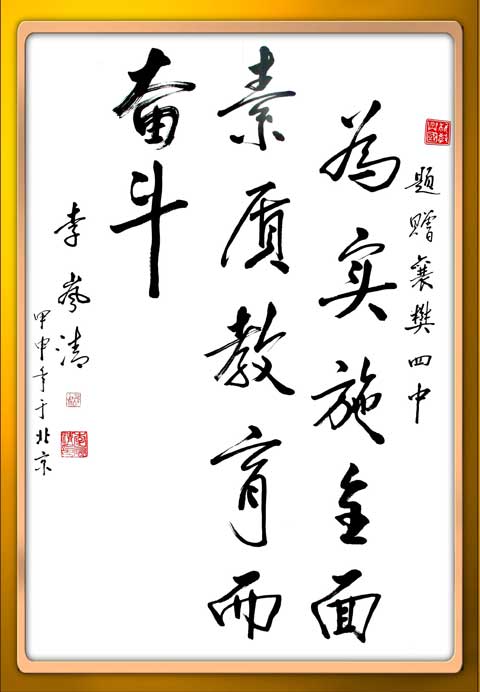 题赠襄樊四中
为实施全面
素质教育而
奋斗
李岚清
甲申年于北京